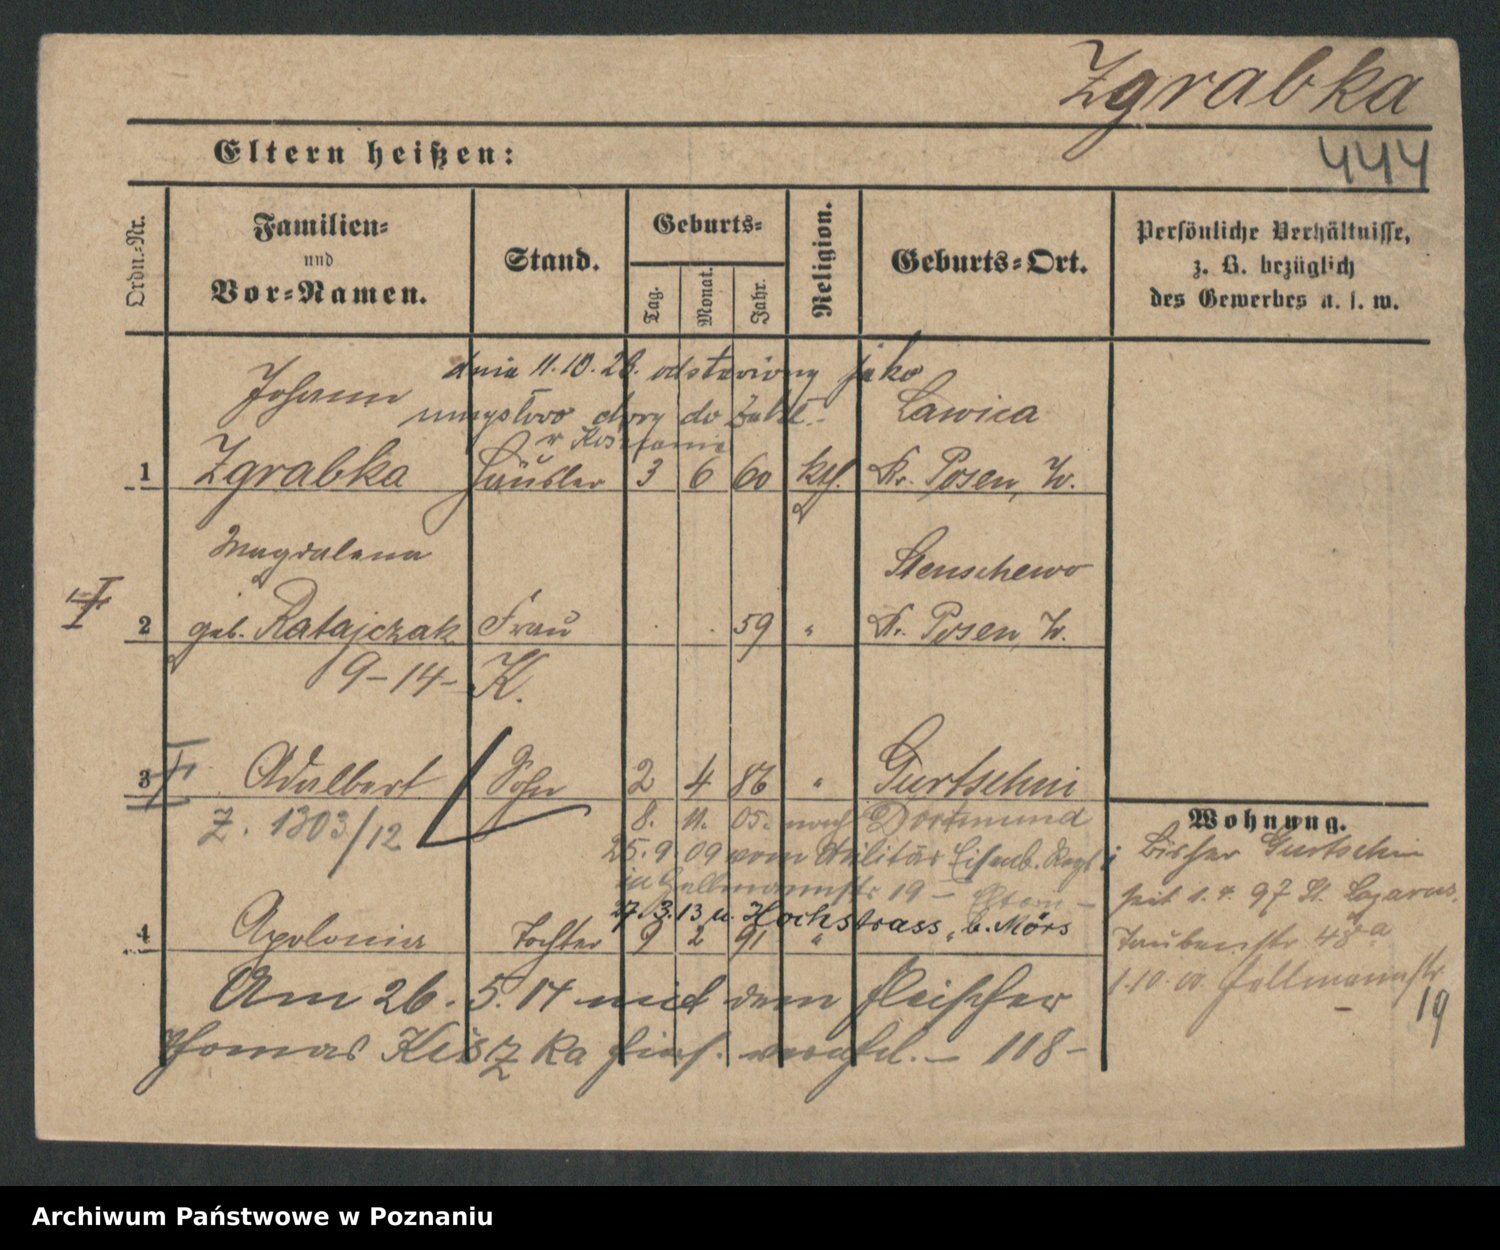 Zgrabka
444
Eltern heißen:
Ordn.-Nr.
Familien-
und
Vor-Namen.
Stand.
Geburts-
Tag.
Monat.
Jahr.
Religion.
Geburts-Ort.
Persönliche Verhältnisse,
z. B. bezüglich
des Gewerbes u. s. w.
dnia 11.10.26. odstawiony jako
umysłowo chory do Zakł.
w Kościanie
Johann
1 Zgrabka Häusler 3 6 60 kth.
Lawica
Kr. Posen, W.
Magdalena
2 geb. Ratajczak Frau . . 59 "
Stenschewo
Kr. Posen, W.
9-14- K.
3 Adalbert Sohn 2 4 86 " Gurtschin
Z. 1303/12
8. 11. 05. nach Dortmund
25. 9 09 vom Militär Eisenb. Regt
in Hellmannstr 19 - Eltern -
27.3.13 u. Hochstrass, b. Mörs
4 Apolonia Tochter 9 2 91 " "
Am 26. 5. 14 mit dem Fleischer
Thomas Kiszka hies. verehel. - 118-
Wohnung.
Bisher Gurtschin
seit 1. 4. 97 St. Lazarus,
Taubenstr 48a
1.10.00. Hellmannstr
19
Archiwum Państwowe w Poznaniu